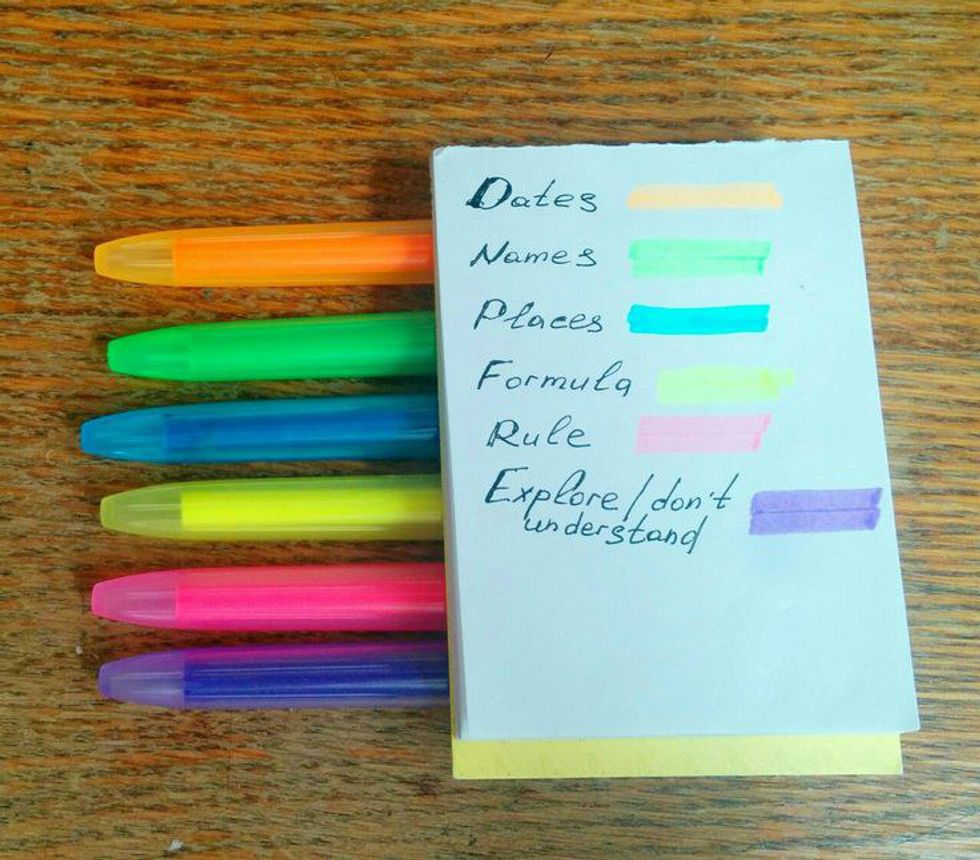 Dates
Names
Places
Formula
Rule
Explore/don't
understand